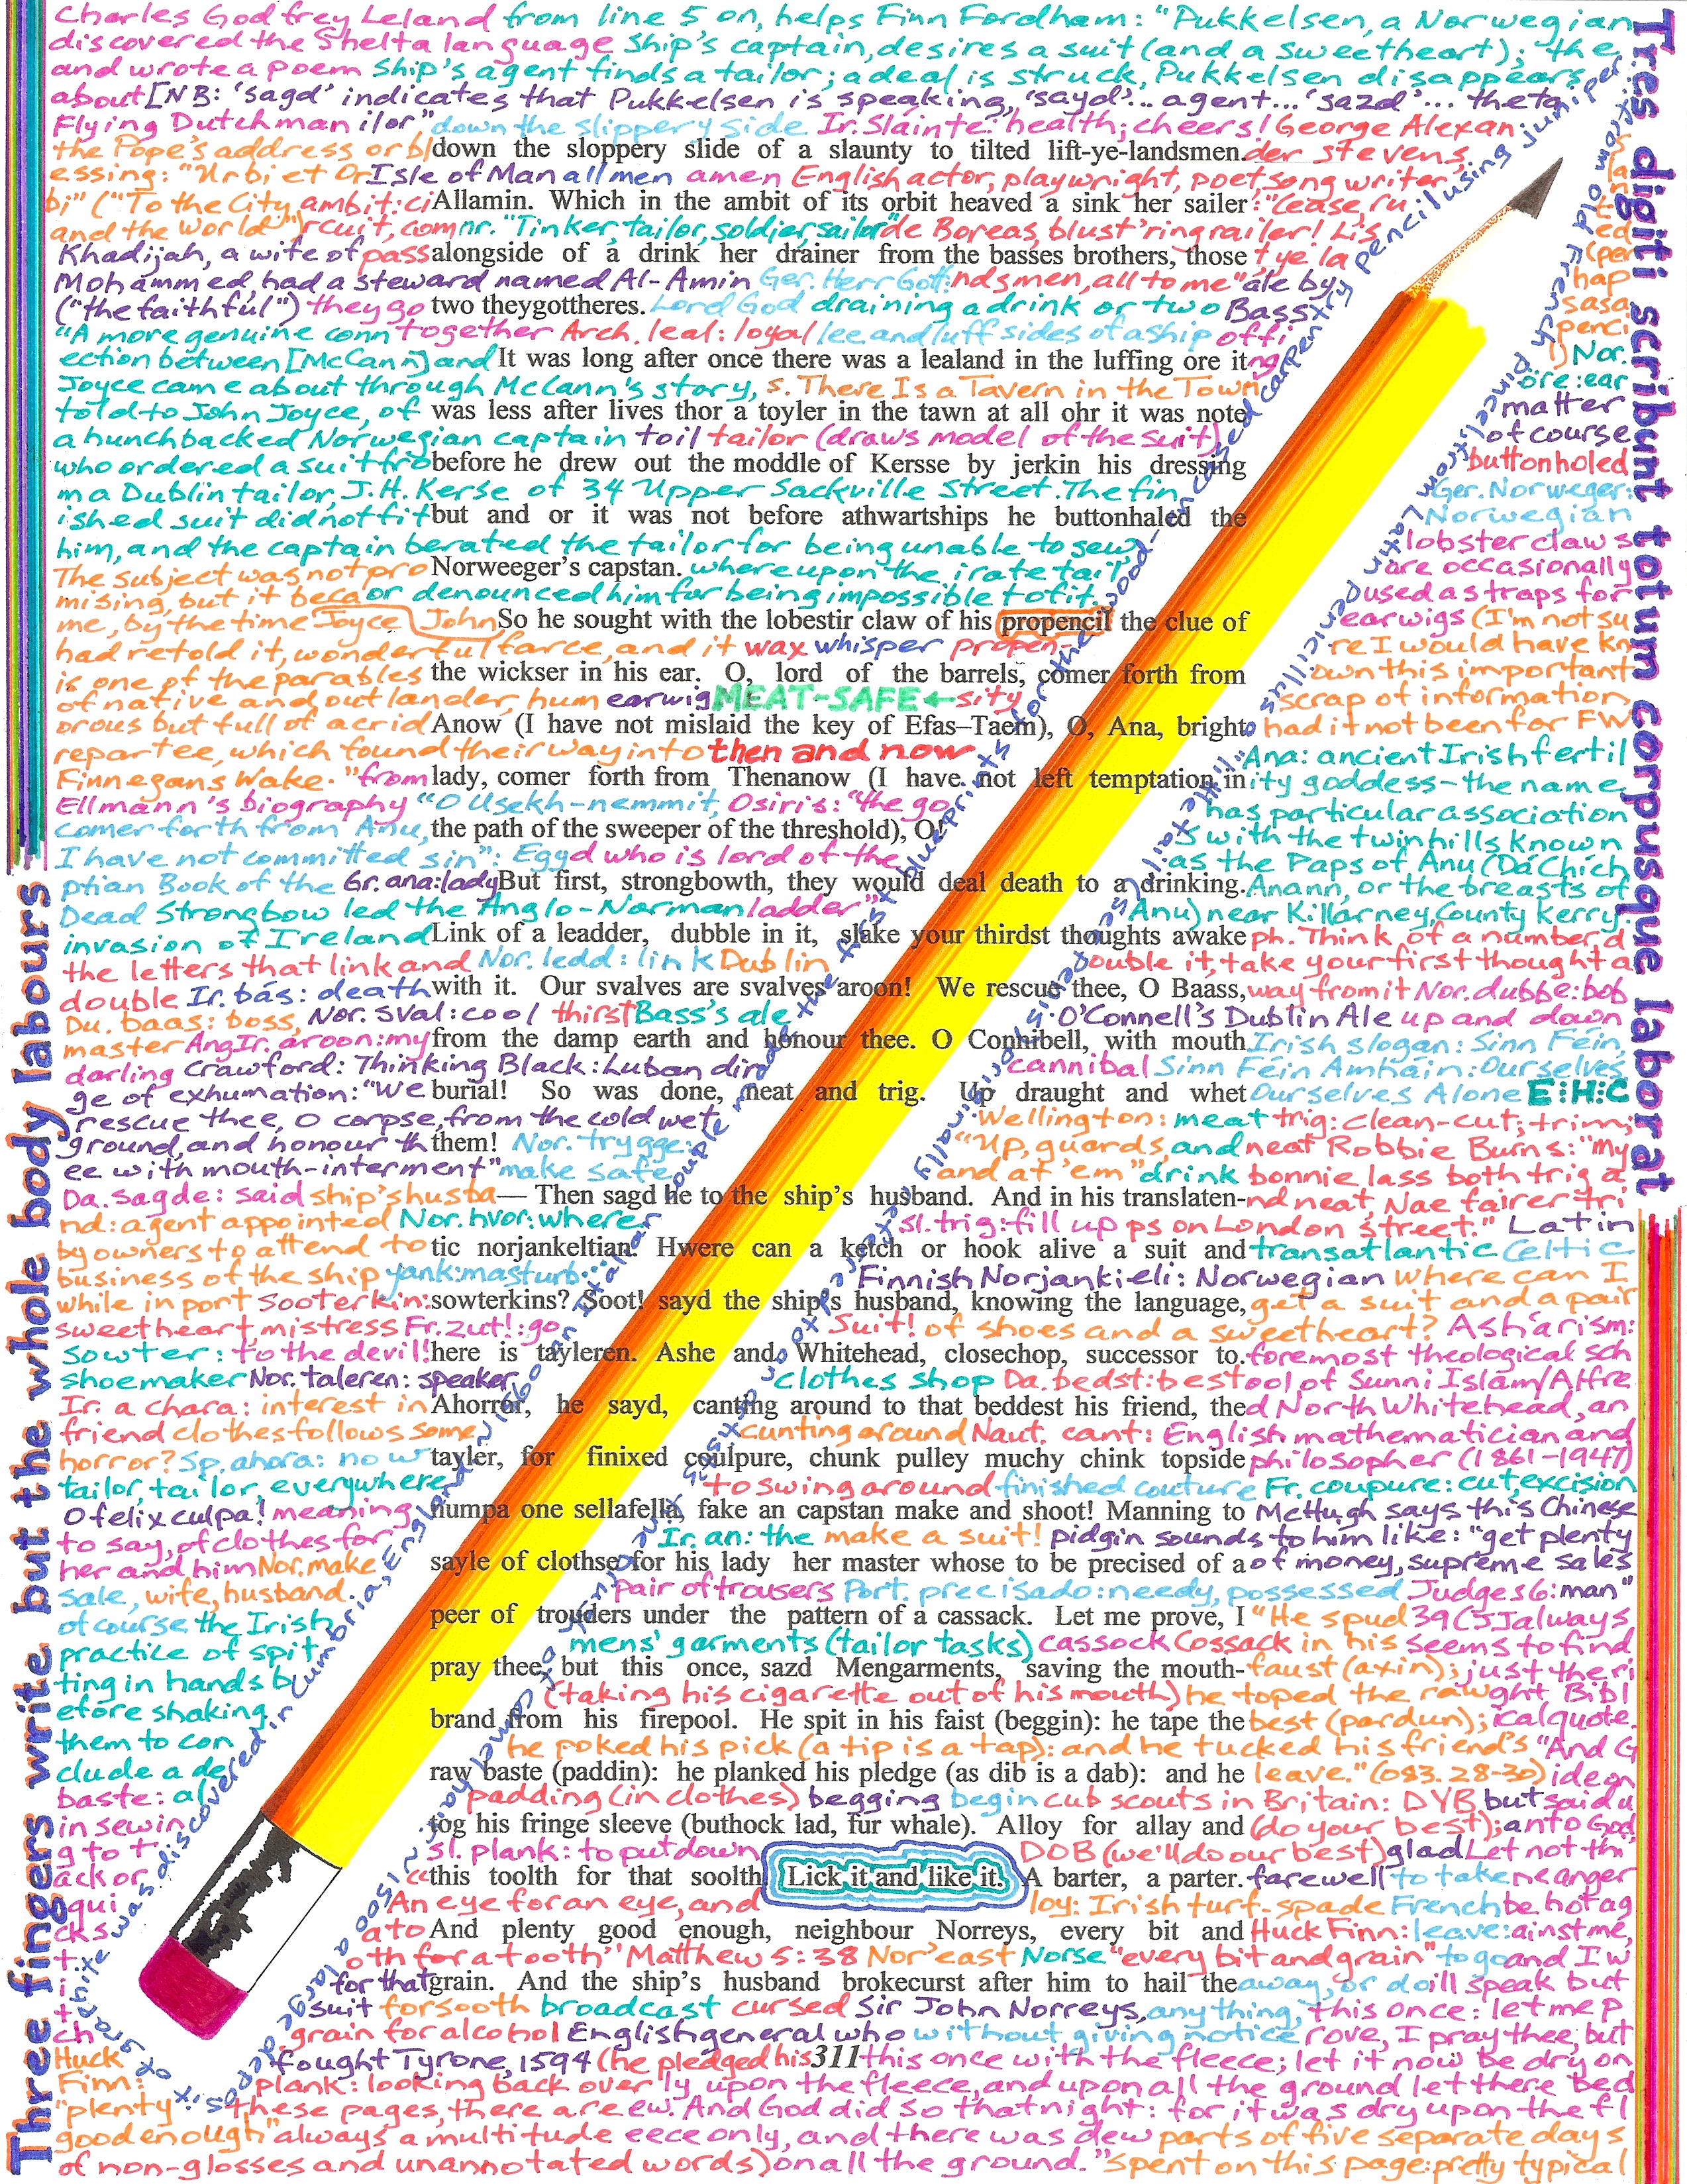 Charles Godfrey Leland from line 5 on, helps Finn Fordham: "Pukkelsen, a Norwegian
discovered the Shelta language Ship's captain, desires a suit (and a sweetheart); the
and wrote a poem Ship's agent finds a tailor; a deal is struck, Pukkelsen disappears
about [NB: 'sagd' indicates that Pukkelsen is speaking, 'sayd'... agent... 'sazd'... the ta
Flying Dutchman ilor" down the slippery side Ir. Slainte: health; cheers! George Alexan
the Pope's address or bl down the sloppery slide of a slaunty to tilted lift-ye-landsmen. der Stevens,
essing: "Urbi et Or Isle of Man all men amen English actor, playwright, poet, song writer
bi" ("To the City ambit: ci Allamin. Which in the ambit of its orbit heaved a sink her sailer : "Cease, ru
and the World") rcuit, com nr. "Tinker, tailor, soldier, sailor de Boreas, blust'ring railer! Lis
Khadijah, a wife of pass alongside of a drink her drainer from the basses brothers, those t ye la
Mohammed, had a steward named Al-Amin Ger. Herr Gott: ndsmen, all to me" ale by
("the faithful") they go two theygottheres. Lord God draining a drink or two Bass
"A more genuine conn together Arch. leal: loyal lee and luff sides of a ship offi
ection between [McCann] and It was long after once there was a lealand in the luffing ore it ng
Joyce came about through McCann's story, s. There Is a Tavern in the Town
told to John Joyce, of was less after lives thor a toyler in the tawn at all ohr it was note
a hunchbacked Norwegian captain toil tailor (draws model of the suit)
who ordered a suit fro before he drew out the moddle of Kersse by jerkin his dressing
m a Dublin tailor, J.H. Kerse of 34 Upper Sackville Street. The fin
ished suit did not fit but and or it was not before athwartships he buttonhaled the
him, and the captain berated the tailor for being unable to sew
The subject was not pro Norweeger's capstan. whereupon the irate tail
mising, but it beca or denounced him for being impossible to fit.
me, by the time Joyce John So he sought with the lobestir claw of his propencil the clue of
had retold it, wonderful farce, and it wax whisper propen-
is one of the parables the wickser in his ear. O, lord of the barrels, comer forth from
of native and outlander, hum earwig MEAT-SAFE ← sity
orous but full of acrid Anow (I have not mislaid the key of Efas–Taem), O, Ana, bright
repartee, which found their way into then and now
Finnegans Wake." from lady, comer forth from Thenanow (I have not left temptation in
Ellmann's biography "O Usekh-nemmit, Osiris: "the go
comer forth from Anu, the path of the sweeper of the threshold), O!
I have not committed sin": Egy d who is lord of the
ptian Book of the Gr. ana: lady But first, strongbowth, they would deal death to a drinking.
Dead Strongbow led the Anglo-Norman ladder"
invasion of Ireland Link of a leadder, dubble in it, slake your thirdst thoughts awake ph. Think of a number, d
the letters that link and Nor. ledd: link Dublin ouble it, take your first thought a
double Ir. bás: death with it. Our svalves are svalves aroon! We rescue thee, O Baass, way from it Nor. dubbe: bob
Du. baas: boss, Nor. sval: cool thirst Bass's ale O'Connell's Dublin Ale up and down
master AngIr. aroon: my from the damp earth and honour thee. O Connibell, with mouth Irish slogan: Sinn Féin,
darling Crawford: Thinking Black: Luban dir cannibal Sinn Féin Amháin: Ourselves,
ge of exhumation: "We burial! So was done, meat and trig. Up draught and whet Ourselves Alone E:H:C
rescue thee, O corpse, from the cold wet Wellington: meat trig: clean-cut; trim;
ground, and honour th them! Nor. trygge: "Up, guards, and neat Robbie Burns: "My
ee with mouth-interment" make safe and at 'em" drink bonnie lass both trig a
Da. sagde: said ship's husba — Then sagd he to the ship's husband. And in his translaten- nd neat, Nae fairer tri
nd: agent appointed Nor. hvor: where sl. trig: fill up ps on London street." Latin
by owners to attend to tic norjankeltian. Hwere can a ketch or hook alive a suit and transatlantic Celtic
business of the ship yank: masturb... Finnish Norjankieli: Norwegian where can I
while in port Sooterkin: sowterkins? Soot! sayd the ship's husband, knowing the language, get a suit and a pair
sweetheart, mistress Fr. zut!: go Suit! of shoes and a sweetheart? Asharism:
sowter: to the devil! here is tayleren. Ashe and Whitehead, closechop, successor to. foremost theological sch
shoemaker Nor. taleren: speaker clothes shop Da. bedst: best ool of Sunni Islam / Alfre
Ir. a chara: interest in Ahorror, he sayd, canting around to that beddest his friend, the d North Whitehead, an
friend clothes follows some cunting around Naut. cant: English mathematician and
horror? Sp. ahora: now tayler, for finixed coulpure, chunk pulley muchy chink topside philosopher (1861-1947)
tailor, tailor, everywhere to swing around finished couture Fr. coupure: cut, excision
O felix culpa! meaning numpa one sellafella, fake an capstan make and shoot! Manning to McHugh says this Chinese
to say, of clothes for Ir. an: the make a suit! pidgin sounds to him like: "get plenty
her and him Nor. make sayle of clothse for his lady her master whose to be precised of a of money, supreme sales
sale, wife, husband. pair of trousers Port. precisado: needy, possessed Judges 6: man"
of course the Irish peer of trouders under the pattern of a cassack. Let me prove, I "He spud 39 (JJ always
practice of spit mens' garments (tailor tasks) cassock Cossack in his seems to find
ting in hands b pray thee, but this once, sazd Mengarments, saving the mouth- faust (axin); just the ri
efore shaking (taking his cigarette out of his mouth) he toped the raw ght Bibl
them to con brand from his firepool. He spit in his faist (beggin): he tape the best (pardun); ical quote.
clude a de he poked his pick (a tip is a tap): and he tucked his friend's "And G
al raw baste (paddin): he planked his pledge (as dib is a dab): and he leave." (083.28-30) ideon
baste: padding (in clothes) begging begin cub scouts in Britain: DYB but said u
in sewin tog his fringe sleeve (buthock lad, fur whale). Alloy for allay and (do your best); anto God,
g to t sl. plank: to put down DOB (we'll do our best) glad Let not thi
ack or this toolth for that soolth. Lick it and like it. A barter, a parter. farewell to take ne anger
qui "An eye for an eye, and a to loy: Irish turf-spade French be hot ag
cks And plenty good enough, neighbour Norreys, every bit and Huck Finn: leave: ainst me,
t. oth for a tooth" Matthew 5:38 Nor'east Norse "every bit and grain" to go and I w
for that grain. And the ship's husband brokecurst after him to hail the away, or do ill speak but
suit forsooth broadcast cursed Sir John Norreys, anything, this once: let me p
grain for alcohol English general who without giving notice rove, I pray thee, but
Huck fought Tyrone, 1594 (he pledged his 311 this once with the fleece; let it now be dry on
Finn: plank: looking back over ly upon the fleece, and upon all the ground let there be d
"plenty these pages, there are ew. And God did so that night: for it was dry upon the fl
good enough" always a multitude eece only, and there was dew parts of five separate days
of non-glosses and unannotated words) on all the ground." spent on this page: pretty typical
Nor.
øre: ear
matter
of course
buttonholed
Ger. Norweger:
Norwegian
lobster claws
are occasionally
used as traps for
earwigs (I'm not su
re I would have kn
own this important
scrap of information
had it not been for FW
Ana: ancient Irish fertil
ity goddess – the name
has particular association
s with the twin hills known
as the Paps of Anu (Dá Chích
Anann, or the breasts of
Anu) near Killarney, County Kerry.
Tres digiti scribunt totum corpusque laborat
Three fingers write but the whole body labours